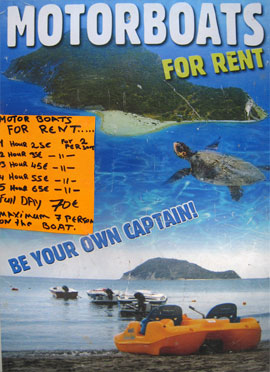 MOTORBOATS
FOR RENT
MOTOR BOATS
FOR RENT.....
1 HOUR 25€ FOR 2 PERSON
2 HOUR 35€ —11—
3 HOUR 45€ —11—
4 HOUR 55€ —11—
5 HOUR 65€ —11—
Full DAY 70€
MAXIMUM 7 PERSON
ON THE BOAT.
BE YOUR OWN CAPTAIN!